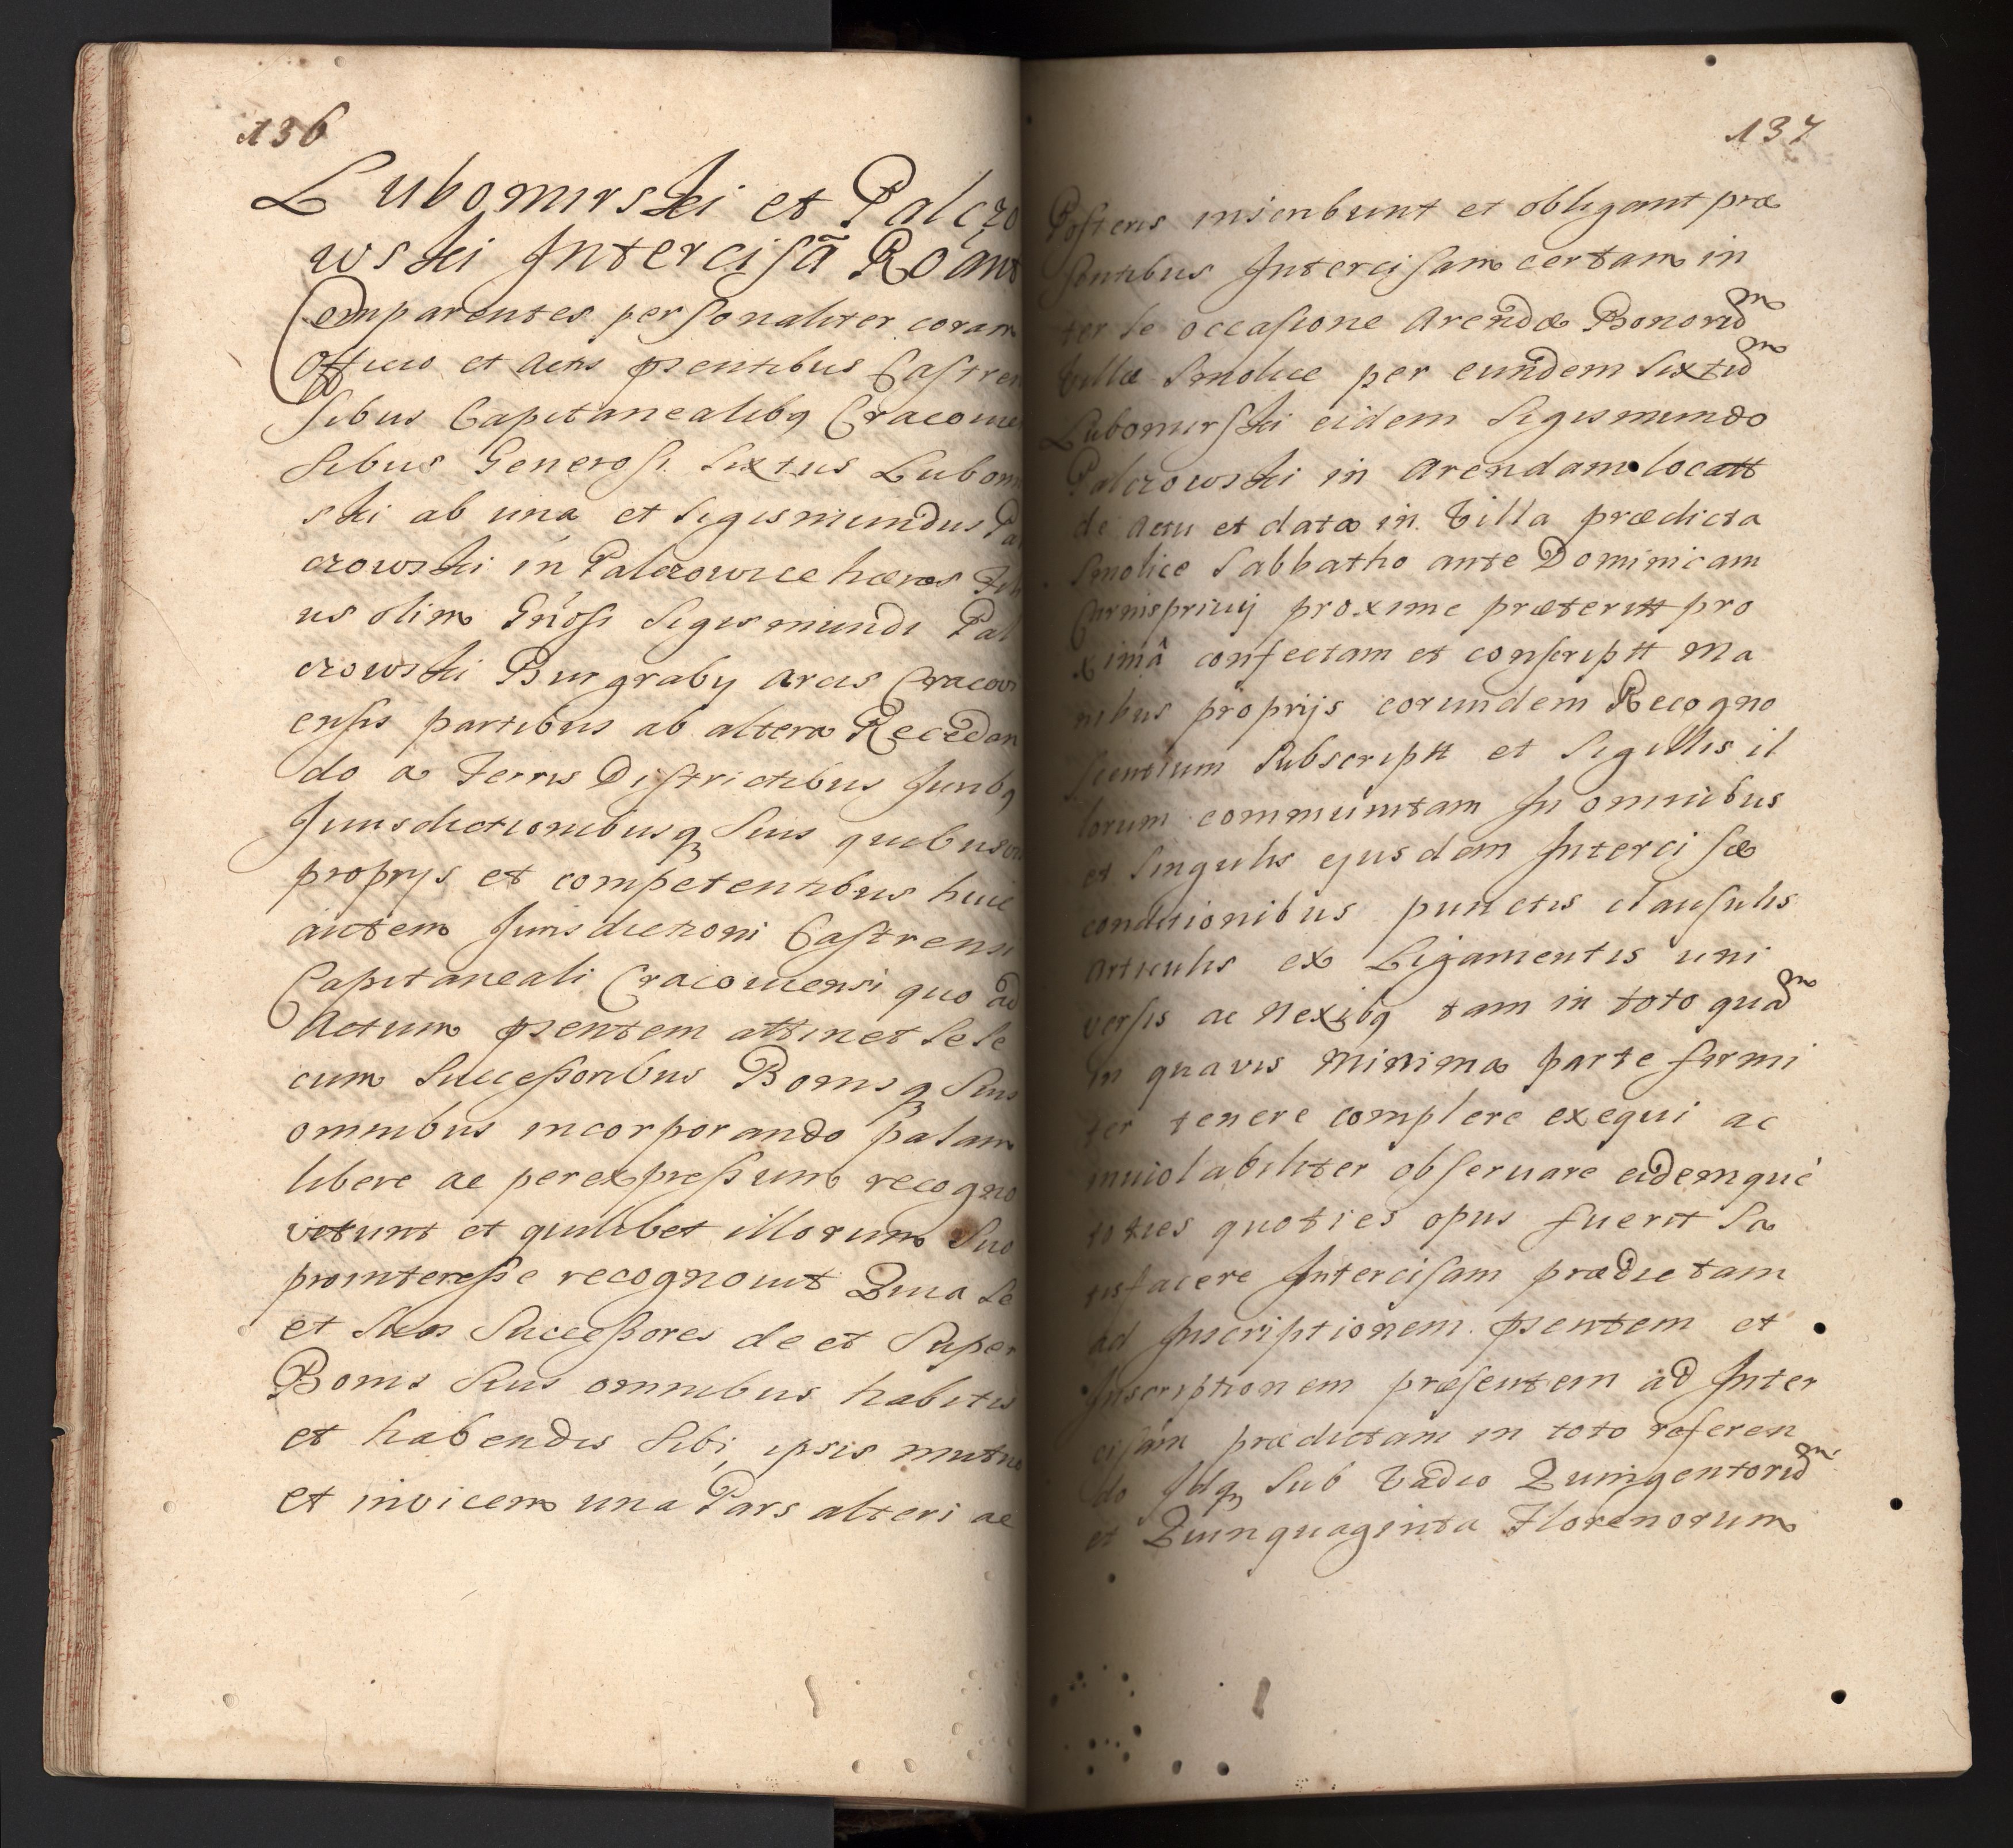 136
Lubomirski et Palczo
wski Intercisã Roant
Comparentes personaliter coram
Officio et Actis psentibus Castren
sibus Capitanealibq Cracovien
sibus Generosi Sixtus Lubomir
ski ab una et Sigismundus Pal
czowski in Palczowice hæres Fili
us olim Gnosi Sigismundi Pal
czowski Burgraby Arcis Cracovi
ensis partibus ab altera Recedan
do a Terris Districtibus Juribq
Jurisdictionibusq Suis quibusvis
proprijs et competentibus huic
autem Jurisdictioni Castrensi
Capitaneali Cracoviensi quo ad
Actum psentem attinet Sese
cum Successoribus Bonisq Suis
omnibus incorporando palam
libere ac per expressum recogno
verunt et quilibet illorum Suo
prointeresse recognouit Quia Se
et Suos Successores de et Super
Bonis Suis omnibus habitis
et habendis Sibi ipsis mutuo
et invicem una Pars alteri ac
137
Posteris inscribunt et obligant præ
sentibus Intercisam certam in
ter Se occasione Arendæ Bonorum
Villæ Smolice per eundem Sixtum
Lubomirski eidem Sigismundo
Palczowski in Arendam locatt
de Actu et data in Villa prædicta
Smolice Sabbatho ante Dominicam
Carnispriuij proxime præteritt pro
ximâ confectam et conscriptt Ma
nibus proprijs eorundem Recogno
scentium Subscriptt et Sigillis il
lorum communitam In omnibus
et Singulis ejusdem Intercisæ
conditionibus punctis clausulis
Articulis ex Ligamentis uni
versis ac Nexibq tam in toto quam
in quavis Minima parte firmi
ter tenere complere exequi ac
inuiolabiliter obseruare eidemque
toties quoties opus fuerit Sa
tisfacere Intercisam prædictam
ad Inscriptionem psentem et
Inscriptionem præsentem ad Inter
cisam prædictam in toto referen
do Idq Sub Vadio Quingentorum
et Quinquaginta Florenorum